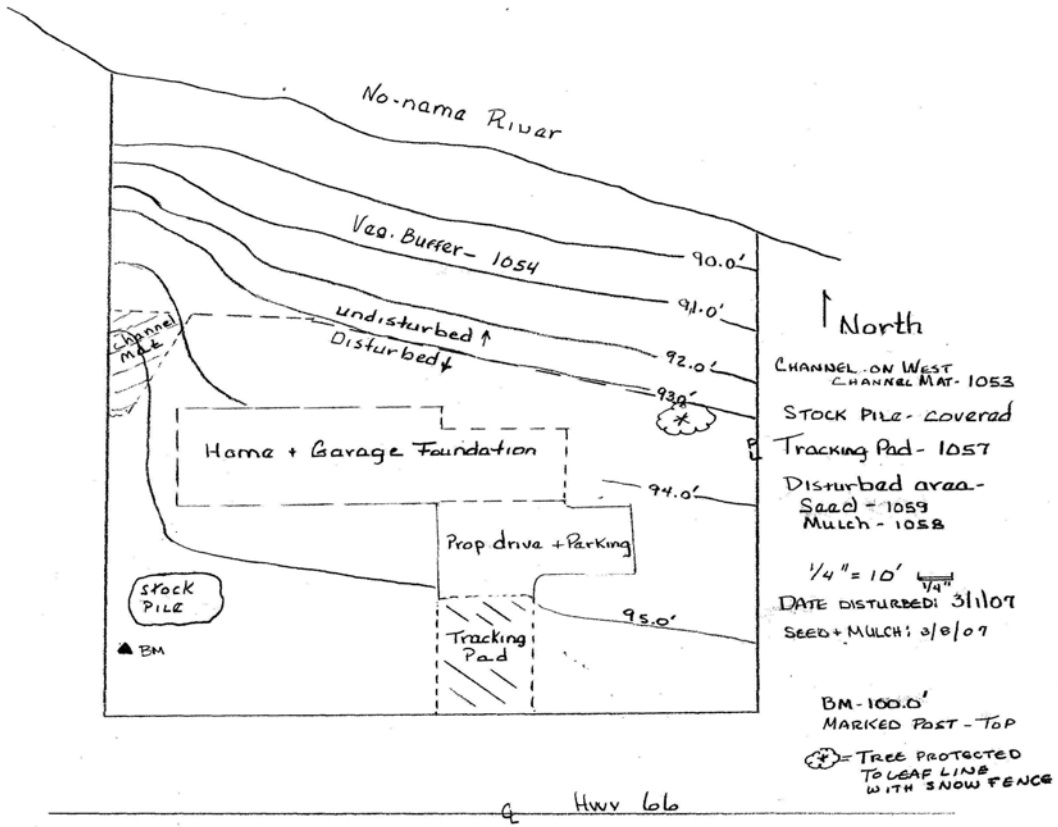 No-name River
Veg. Buffer - 1054
90.0'
91.0'
undisturbed ↑
Disturbed ↓
92.0'
93.0'
channel
mat
Home + Garage Foundation
94.0'
Prop drive + Parking
Stock
Pile
BM
Tracking
Pad
95.0'
Hwy 66
North
CHANNEL ON WEST
CHANNEL MAT - 1053
STOCK PILE - covered
PL
Tracking Pad - 1057
Disturbed area -
Seed - 1059
Mulch - 1058
1/4" = 10'
1/4"
DATE DISTURBED: 3/1/07
SEED + MULCH: 3/8/07
BM - 100.0'
MARKED POST - TOP
= TREE PROTECTED
TO LEAF LINE
WITH SNOW FENCE
CL